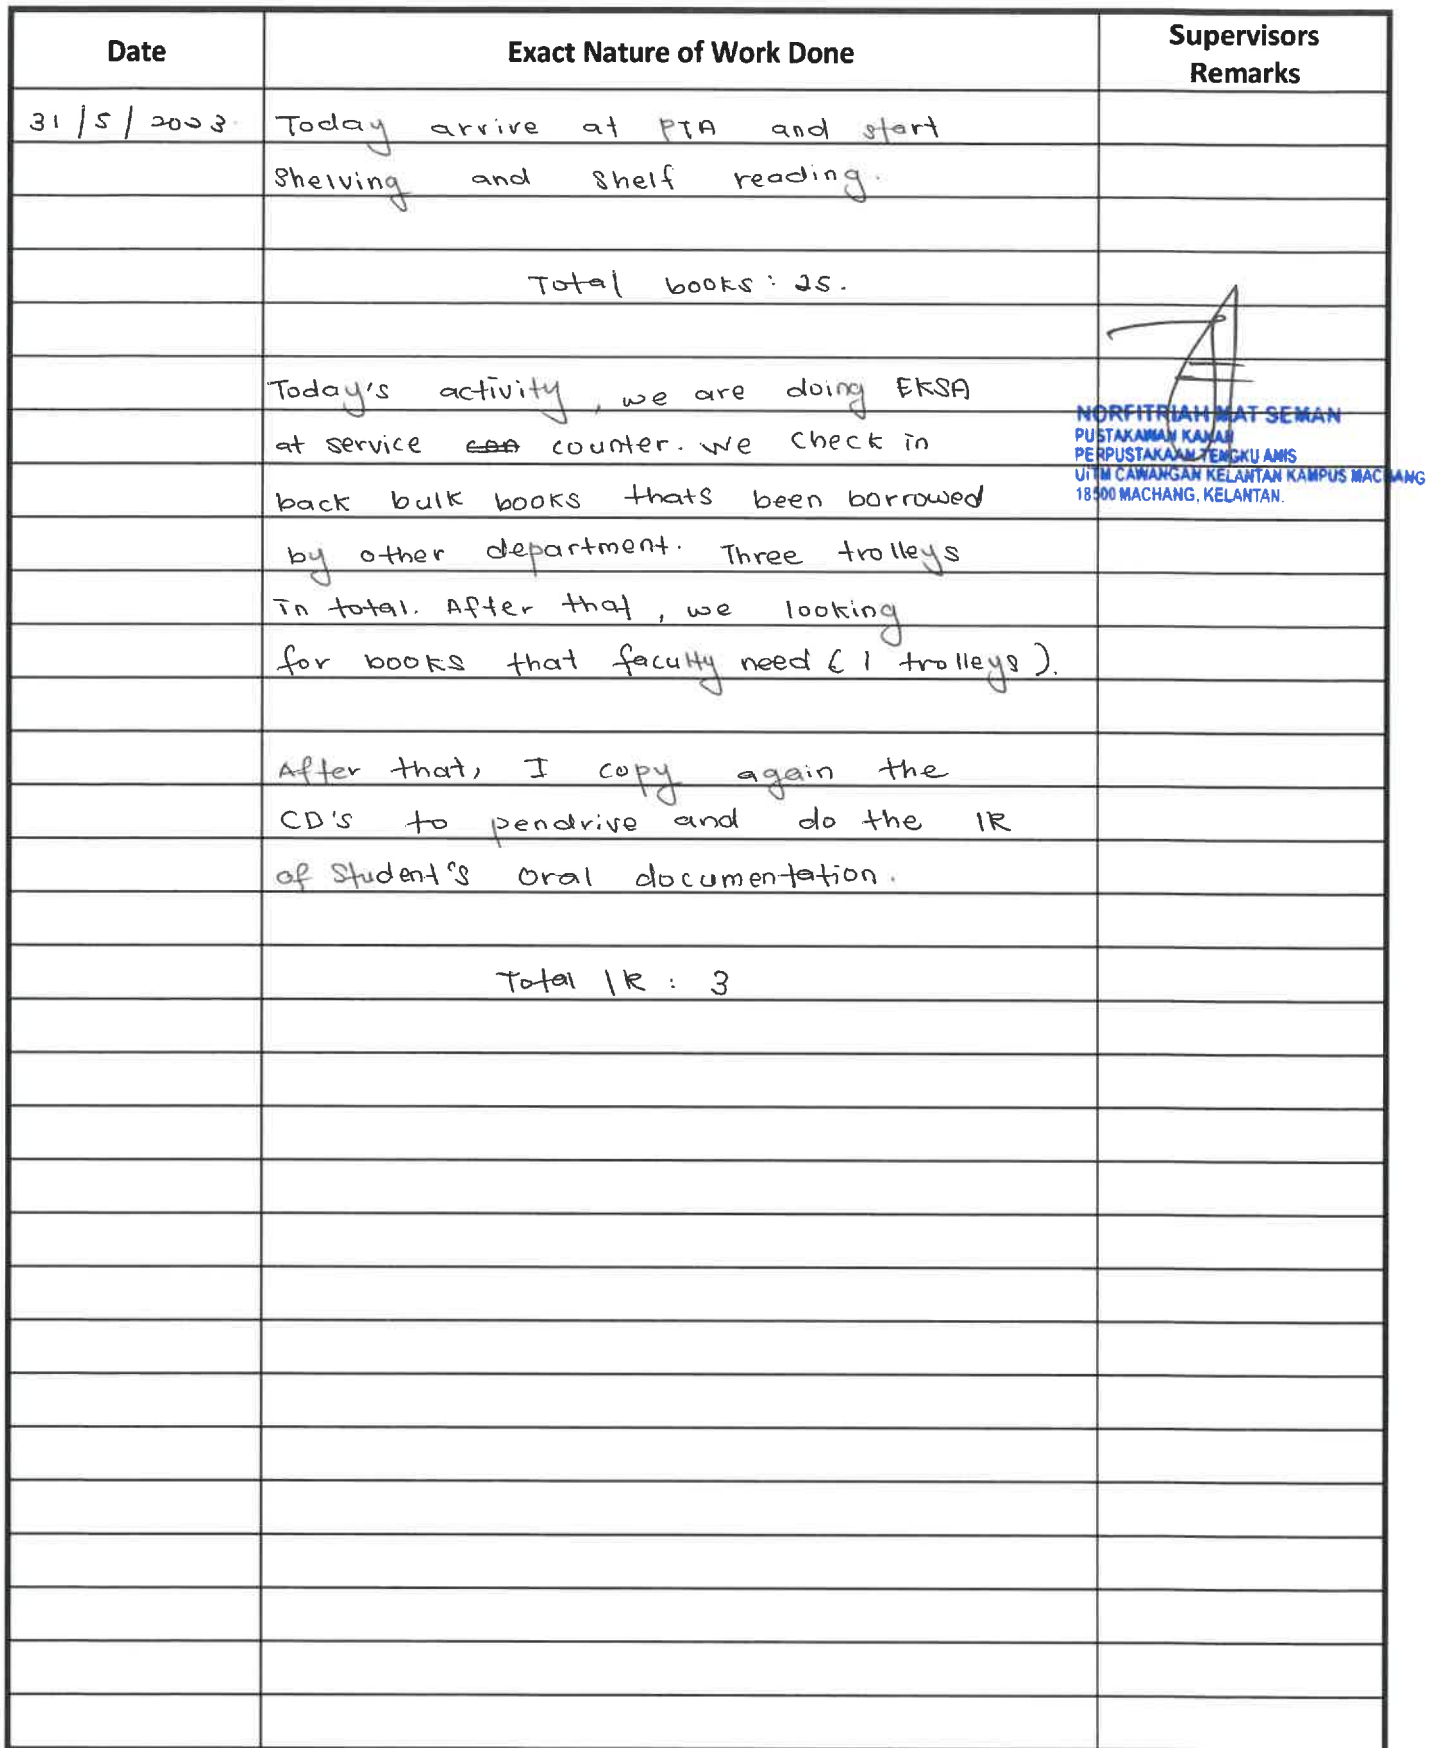 Date Exact Nature of Work Done Supervisors Remarks
31/5/2023 Today arrive at PTA and start
shelving and shelf reading.
Total books : 25.
Today's activity, we are doing EKSA
at service counter. we check in
back bulk books thats been borrowed
by other department. Three trolleys
in total. After that, we looking
for books that faculty need (1 trolleys).
After that, I copy again the
CD's to pendrive and do the IR
of student's oral documentation.
Total IR : 3
NORFITRIAH MAT SEMAN
PUSTAKAWAN KANAN
PERPUSTAKAAN TENGKU ANIS
UiTM CAWANGAN KELANTAN KAMPUS MACHANG
18500 MACHANG, KELANTAN.